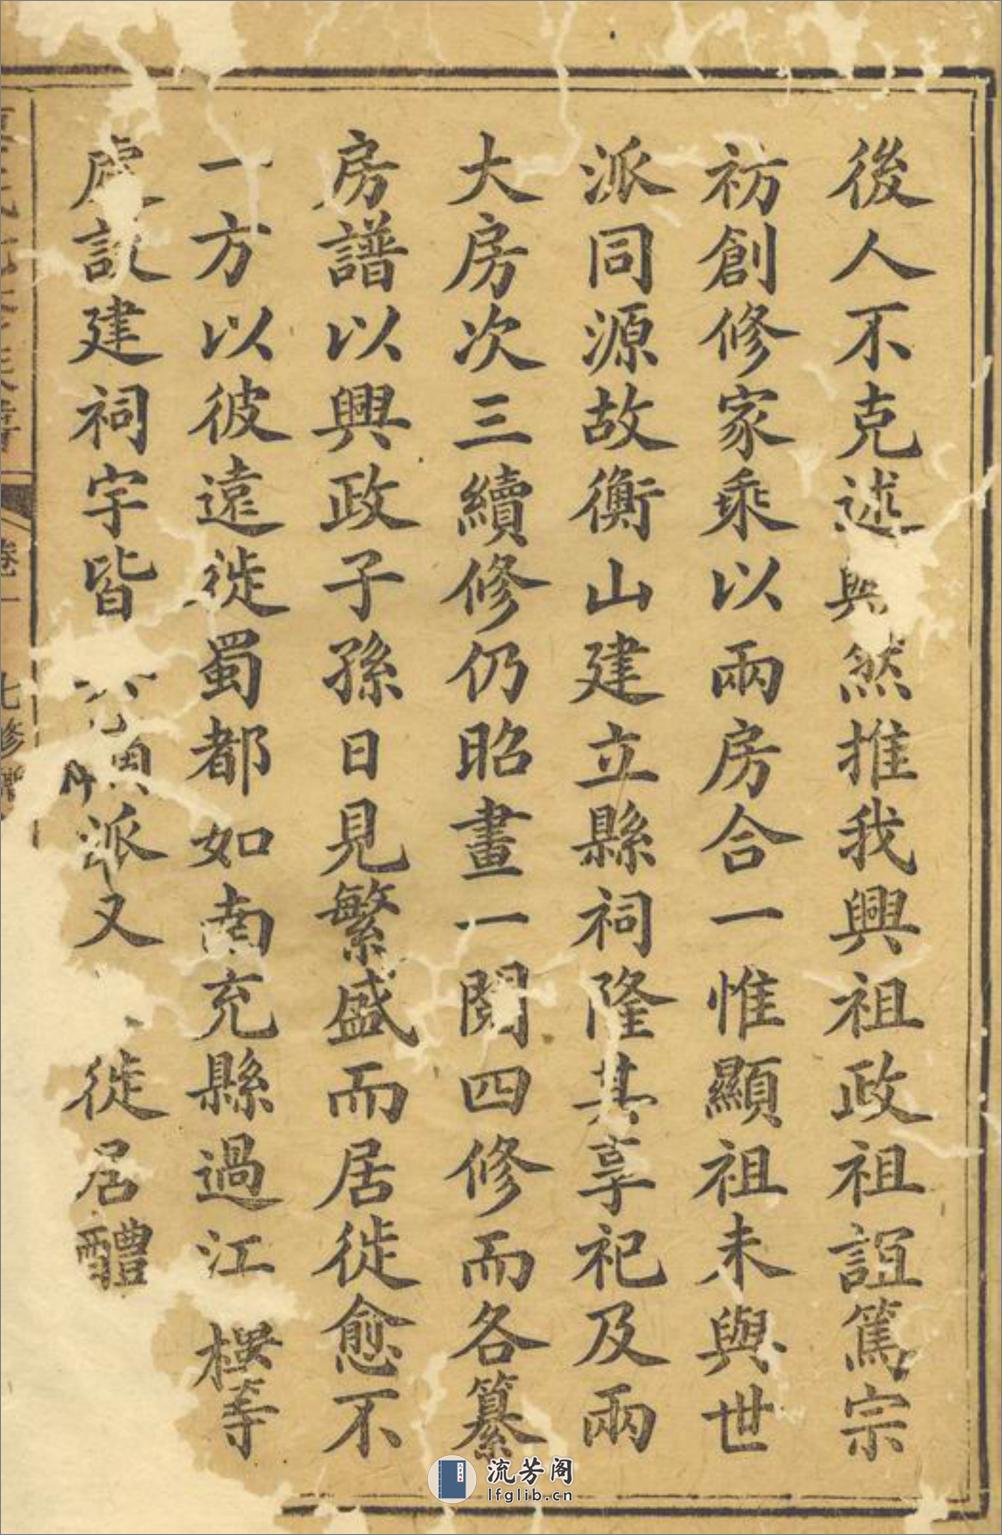 後人不克述與然推我興祖政祖誼篤宗
祊創修家乘以兩房合一惟顯祖未與世
派同源故衡山建立縣祠隆其享祀及兩
大房次三續修仍昭畫一閱四修而各纂
房譜以興政子孫日見繁盛而居徙愈不
一方以彼遠徙蜀都如南充縣過江樑等
處設建祠宇皆派又徙居醴
卷一
七修譜
流芳阁
lfglib.cn